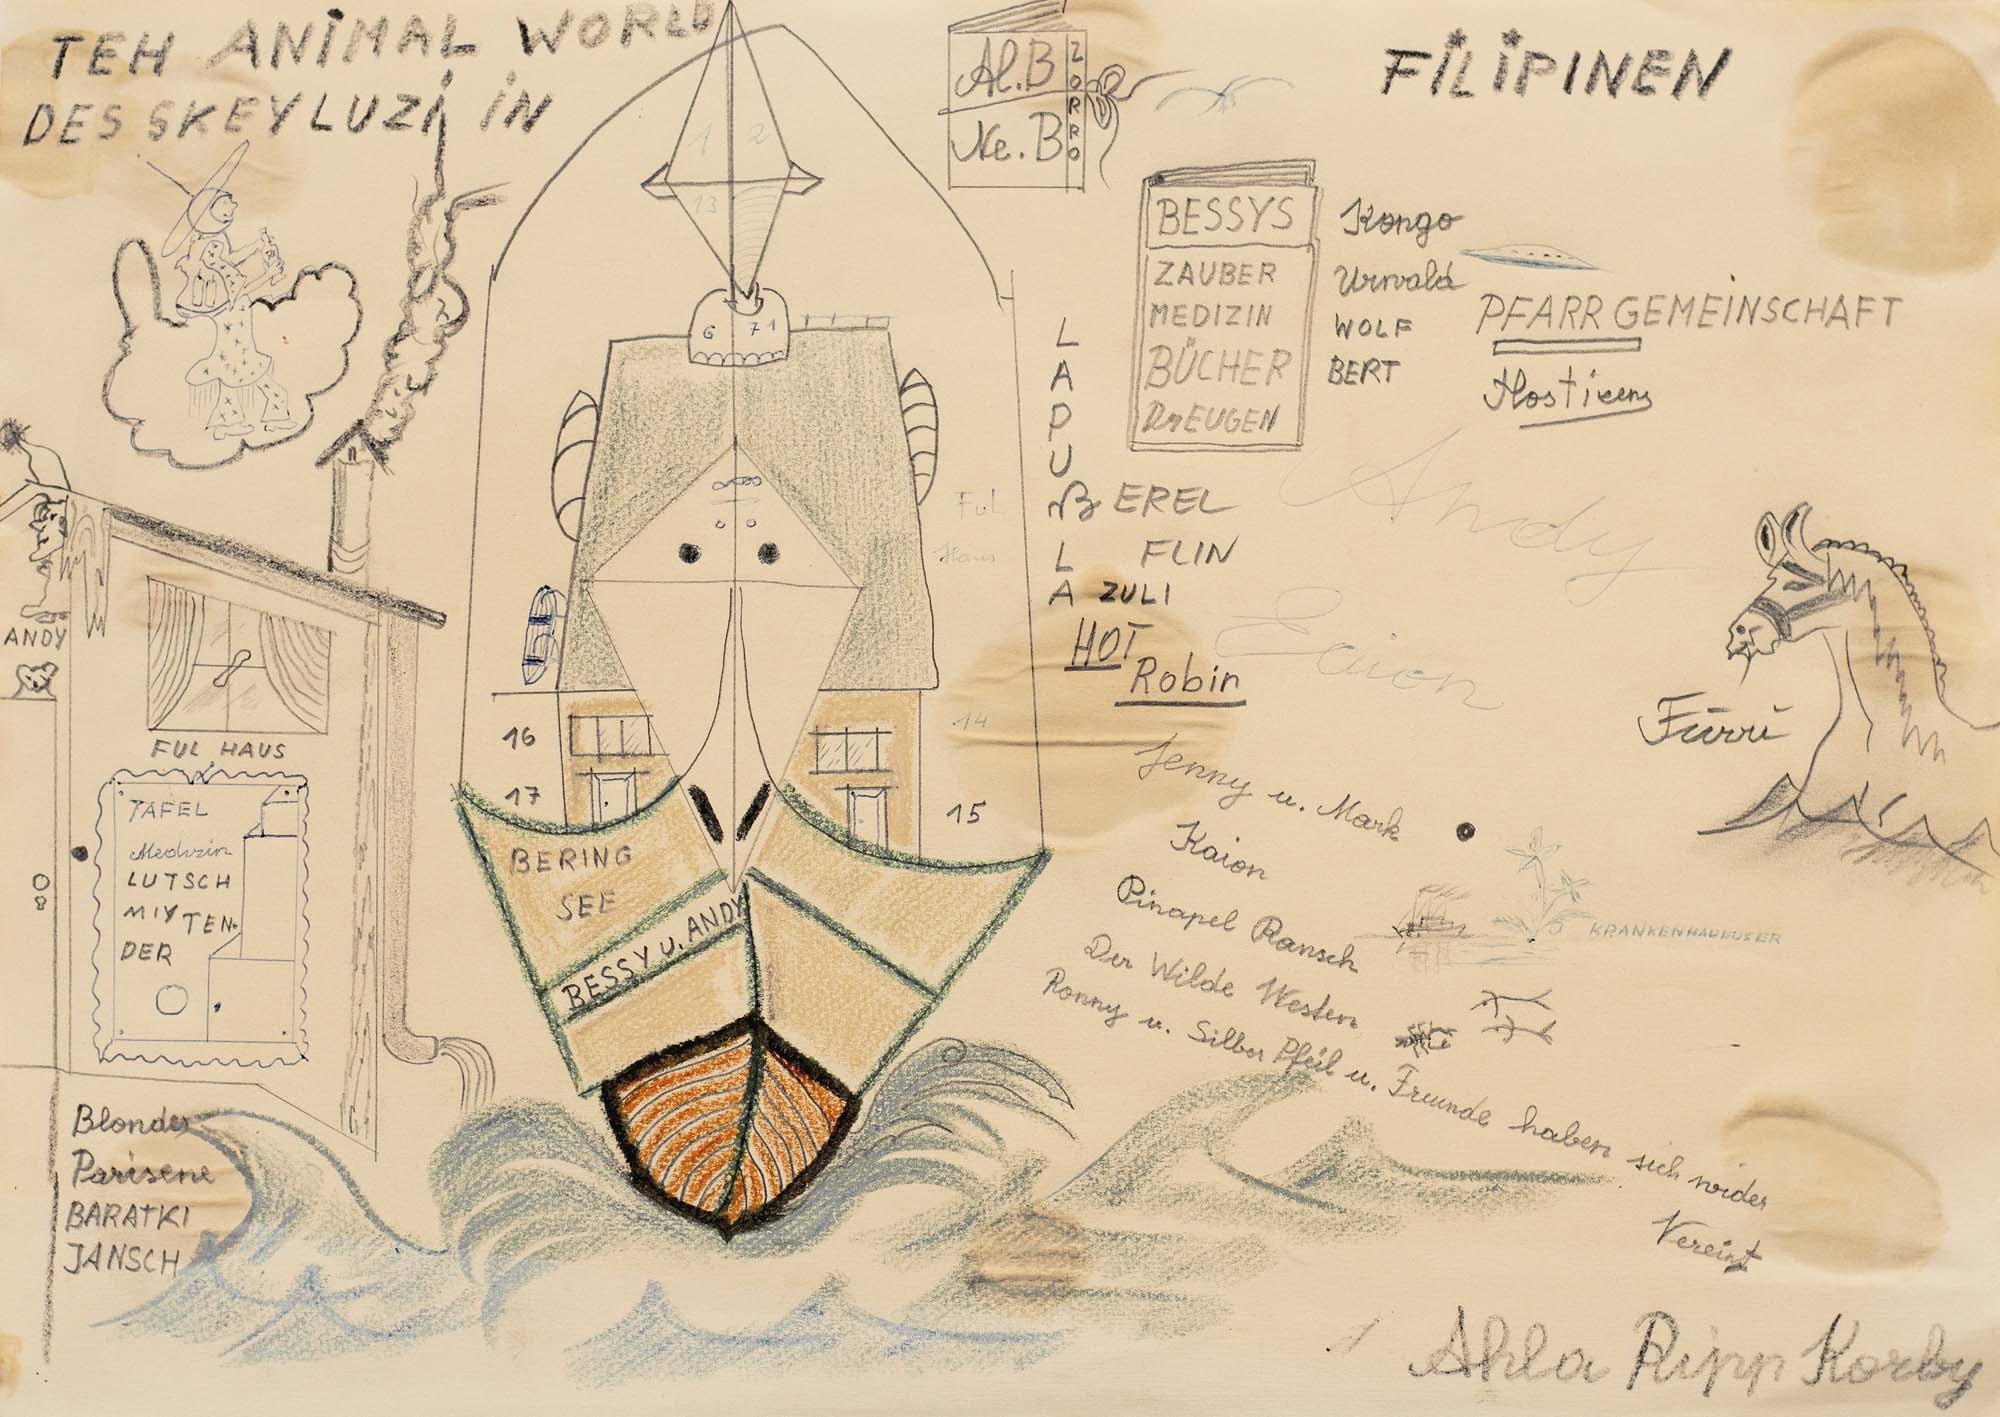 TEH ANIMAL WORLD
DES SKEYLUZI IN
FILIPINEN
Al.B
Ne.B
ZORRO
BESSYS
ZAUBER
MEDIZIN
BÜCHER
EUGEN
Kongo
Urwald
WOLF
BERT
PFARRGEMEINSCHAFT
Hostiens
LAPU
EREL
L FLIN
A ZULI
HOT
Robin
Andy
Kaion
1 2
13
6 71
Ful
Haus
14
16
17
15
ANDY
FUL HAUS
TAFEL
Medizin
LUTSCH
MIXTEN-
DER
Fürrü
BERING
SEE
BESSY U. ANDY
Jenny u. Mark
Kaion
Pinapel Ransch
Der Wilde Western
Ronny u. Silber Pfeil u. Freunde haben sich wider
Vereint
KRANKENHAUEUSER
Blondes
Parisene
BARATKI
JANSCH
1
Ahla Ripp Korby